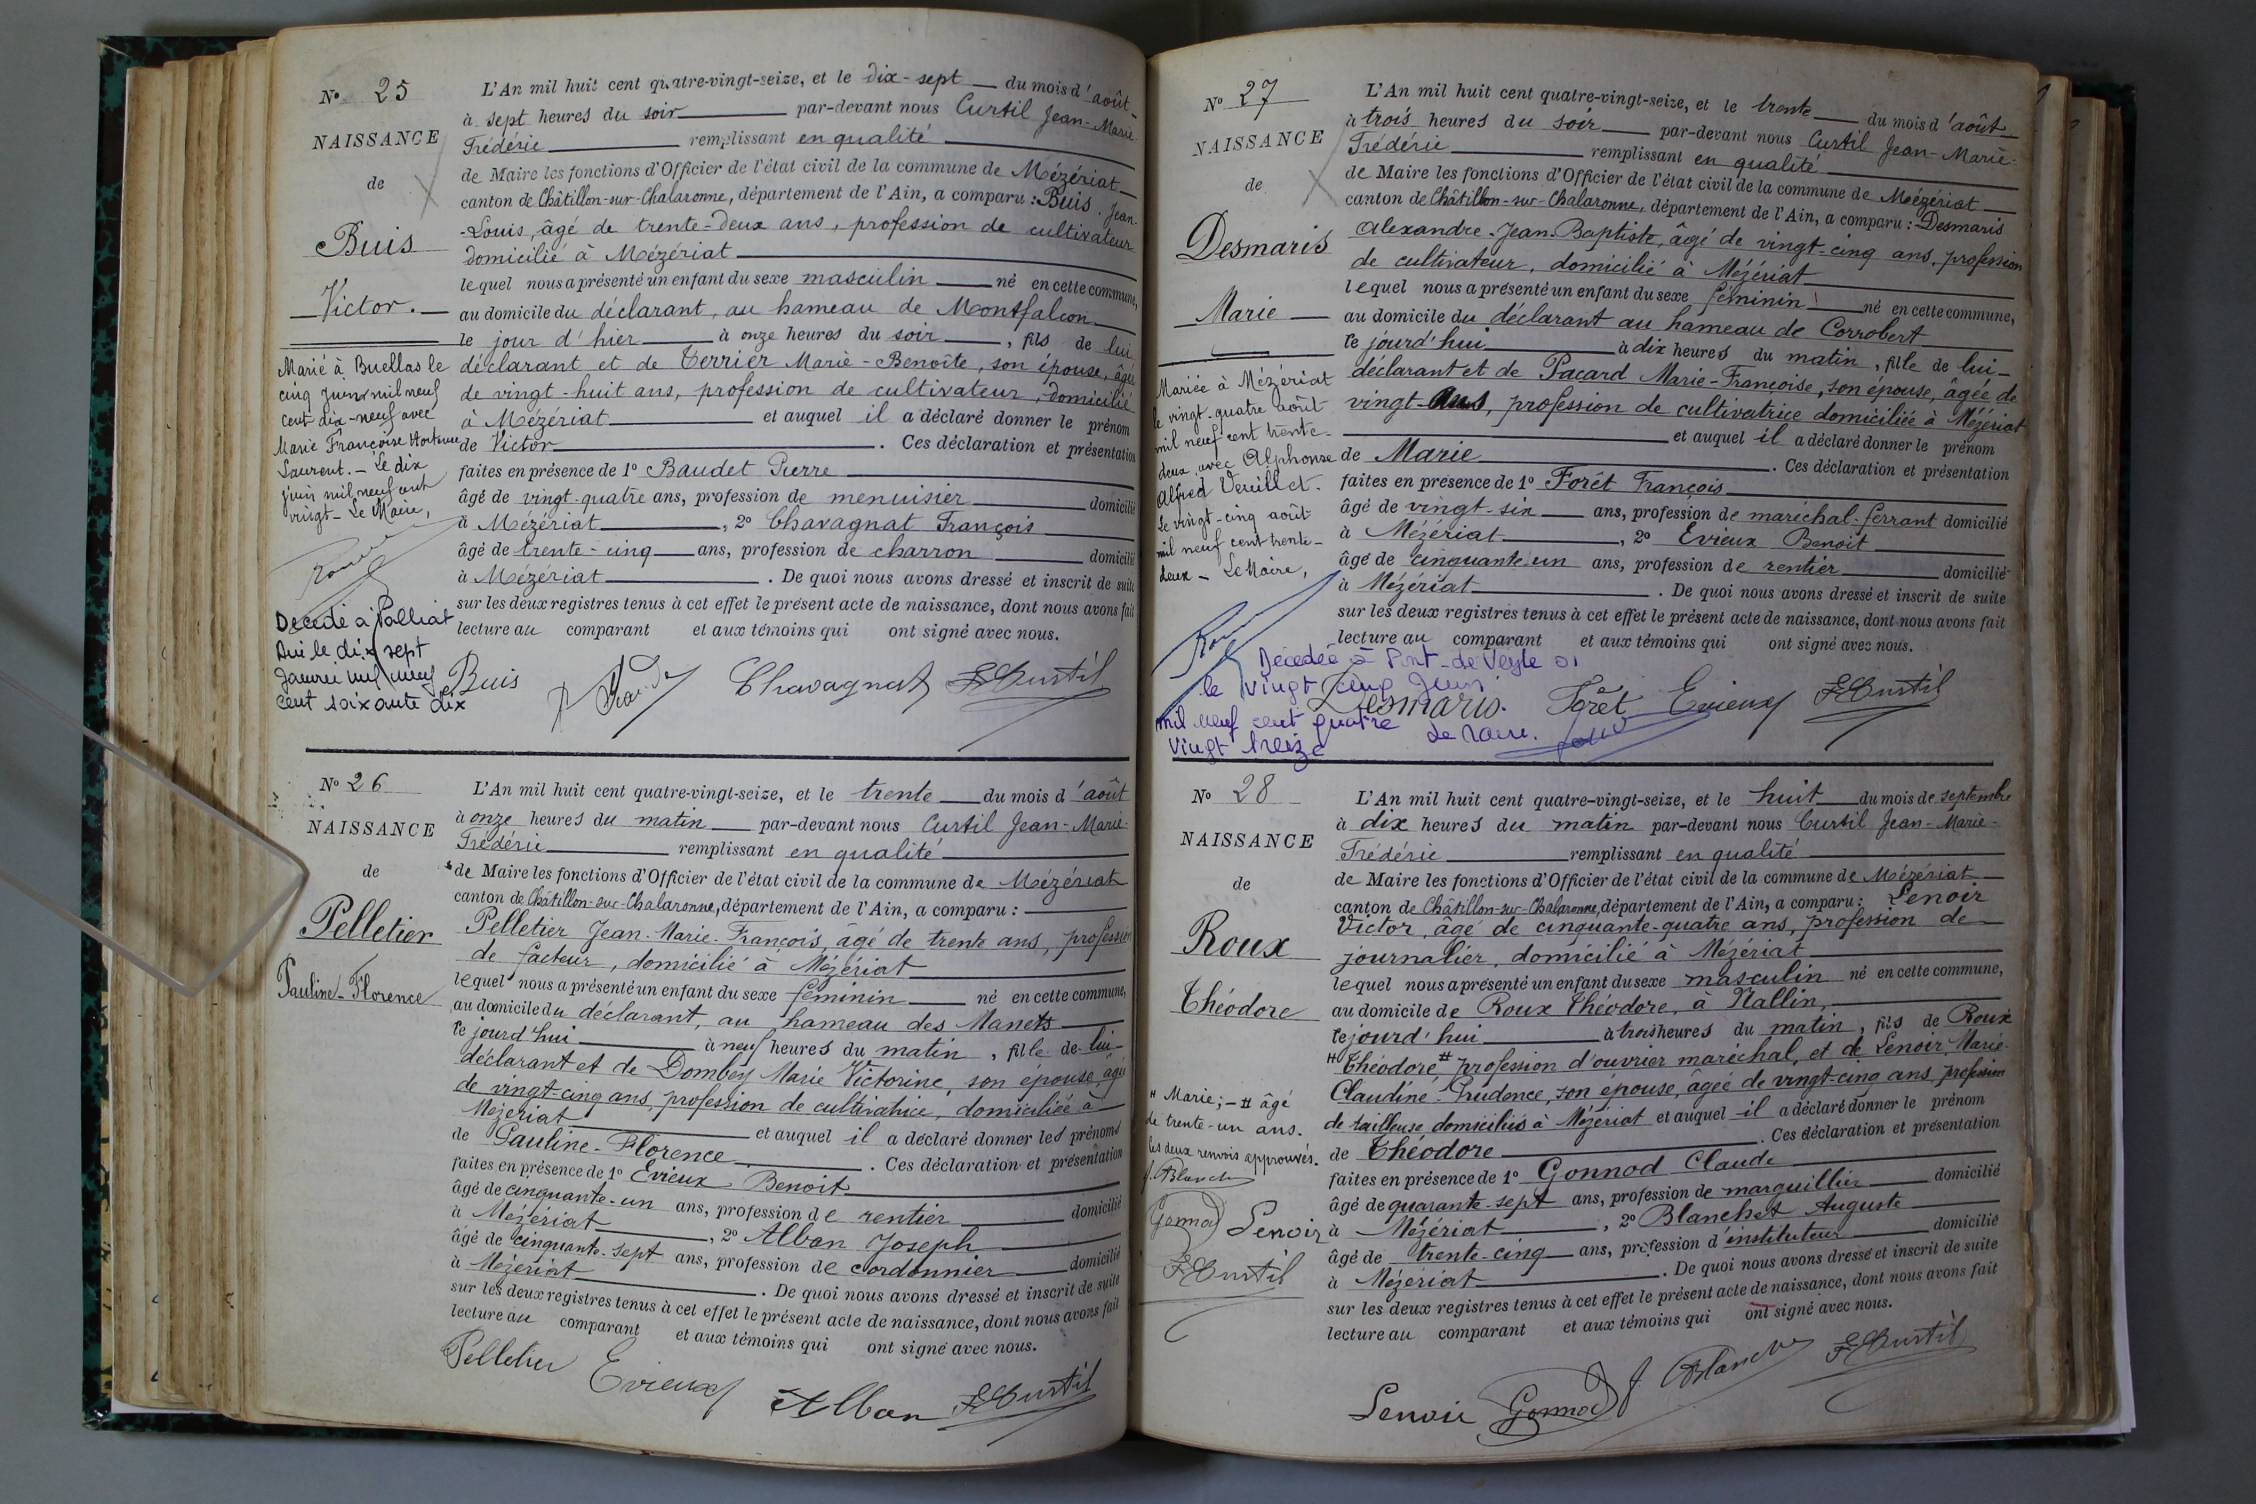 Nº 25
NAISSANCE
de
Buis
Victor.
Marié à Buellas le
cinq juin mil neuf
cent-dix-neuf avec
Marie Françoise Hortense
Laurent. – Le dix
juin mil neuf cent
vingt – Le Maire,
Décédé à Polliat
Ain le dix sept
janvier mil neuf
cent soixante dix
L'An mil huit cent quatre-vingt-seize, et le dix-sept du mois d'août
à sept heures du soir par-devant nous Curtil Jean-Marie-
Frédéric remplissant en qualité
de Maire les fonctions d'Officier de l'état civil de la commune de Mézériat
canton de Châtillon-sur-Chalaronne, département de l'Ain, a comparu : Buis Jean-
-Louis, âgé de trente-deux ans, profession de cultivateur
domicilié à Mézériat
lequel nous a présenté un enfant du sexe masculin né en cette commune,
au domicile du déclarant, au hameau de Montfalcon
le jour d'hier à onze heures du soir, fils de lui
déclarant et de Terrier Marie-Benoîte, son épouse, âgée
de vingt-huit ans, profession de cultivateur, domicilié
à Mézériat et auquel il a déclaré donner le prénom
de Victor. Ces déclaration et présentation
faites en présence de 1º Baudet Pierre
âgé de vingt-quatre ans, profession de menuisier domicilié
à Mézériat, 2º Chavagnat François
âgé de trente-cinq ans, profession de charron domicilié
à Mézériat. De quoi nous avons dressé et inscrit de suite
sur les deux registres tenus à cet effet le présent acte de naissance, dont nous avons fait
lecture au comparant et aux témoins qui ont signé avec nous.
Buis Chavagnat Curtil
Nº 26
NAISSANCE
de
Pelletier
Pauline-Florence
L'An mil huit cent quatre-vingt-seize, et le trente du mois d'août
à onze heures du matin par-devant nous Curtil Jean-Marie-
Frédéric remplissant en qualité
de Maire les fonctions d'Officier de l'état civil de la commune de Mézériat
canton de Châtillon-sur-Chalaronne, département de l'Ain, a comparu :
Pelletier Jean-Marie-François, âgé de trente ans, profession
de facteur, domicilié à Mézériat
lequel nous a présenté un enfant du sexe féminin né en cette commune,
au domicile du déclarant, au hameau des Manets
le jourd'hui à neuf heures du matin, fille de lui-
déclarant et de Dombey Marie Victorine, son épouse, âgée
de vingt-cinq ans, profession de cultivatrice, domiciliée à
Mézériat et auquel il a déclaré donner les prénoms
de Pauline-Florence. Ces déclaration et présentation
faites en présence de 1º Evieux Benoit
âgé de cinquante-un ans, profession de rentier domicilié
à Mézériat, 2º Alban Joseph
âgé de cinquante-sept ans, profession de cordonnier domicilié
à Mézériat. De quoi nous avons dressé et inscrit de suite
sur les deux registres tenus à cet effet le présent acte de naissance, dont nous avons fait
lecture au comparant et aux témoins qui ont signé avec nous.
Pelletier Evieux Alban Curtil
Nº 27
NAISSANCE
de
Desmaris
Marie
Mariée à Mézériat
le vingt-quatre août
mil neuf cent trente-
deux, avec Alphonse
Alfred Vuillet.
Le vingt-cinq août
mil neuf cent trente-
deux – Le Maire,
L'An mil huit cent quatre-vingt-seize, et le trente du mois d'août
à trois heures du soir par-devant nous Curtil Jean-Marie-
Frédéric remplissant en qualité
de Maire les fonctions d'Officier de l'état civil de la commune de Mézériat
canton de Châtillon-sur-Chalaronne, département de l'Ain, a comparu : Desmaris
Alexandre-Jean-Baptiste, âgé de vingt-cinq ans, profession
de cultivateur, domicilié à Mézériat
lequel nous a présenté un enfant du sexe féminin né en cette commune,
au domicile du déclarant au hameau de Corrobert
le jourd'hui à dix heures du matin, fille de lui-
déclarant et de Pacard Marie-Françoise, son épouse, âgée de
vingt-ans, profession de cultivatrice domiciliée à Mézériat
et auquel il a déclaré donner le prénom
de Marie. Ces déclaration et présentation
faites en présence de 1º Forêt François
âgé de vingt-six ans, profession de maréchal-ferrant domicilié
à Mézériat, 2º Evieux Benoit
âgé de cinquante-un ans, profession de rentier domicilié
à Mézériat. De quoi nous avons dressé et inscrit de suite
sur les deux registres tenus à cet effet le présent acte de naissance, dont nous avons fait
lecture au comparant et aux témoins qui ont signé avec nous.
Décédée à Pont-de-Veyle 01
le vingt cinq juin
mil neuf cent quatre
vingt treize Le Maire.
Desmaris. Forêt Evieux Curtil
Nº 28
NAISSANCE
de
Roux
Théodore
# Marie; – # âgé
de trente-un ans.
les deux renvois approuvés.
Gonnod Lenoir
Curtil
L'An mil huit cent quatre-vingt-seize, et le huit du mois de septembre
à dix heures du matin par-devant nous Curtil Jean-Marie-
Frédéric remplissant en qualité
de Maire les fonctions d'Officier de l'état civil de la commune de Mézériat
canton de Châtillon-sur-Chalaronne, département de l'Ain, a comparu : Lenoir
Victor, âgé de cinquante-quatre ans, profession de
journalier, domicilié à Mézériat
lequel nous a présenté un enfant du sexe masculin né en cette commune,
au domicile de Roux Théodore, à Nallin,
le jourd'hui à trois heures du matin, fils de Roux
# Théodore # profession d'ouvrier maréchal, et de Lenoir Marie-
Claudine-Prudence, son épouse, âgée de vingt-cinq ans, profession
de tailleuse domiciliés à Mézériat et auquel il a déclaré donner le prénom
de Théodore. Ces déclaration et présentation
faites en présence de 1º Gonnod Claude
âgé de quarante-sept ans, profession de marguillier domicilié
à Mézériat, 2º Blanchet Auguste
âgé de trente-cinq ans, profession d'instituteur domicilié
à Mézériat. De quoi nous avons dressé et inscrit de suite
sur les deux registres tenus à cet effet le présent acte de naissance, dont nous avons fait
lecture au comparant et aux témoins qui ont signé avec nous.
Lenoir Gonnod Curtil